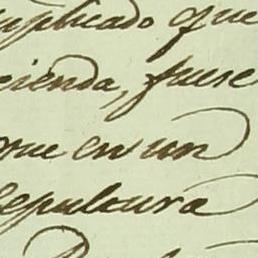 uplicado que
cienda, fuese
que en un
sepultura